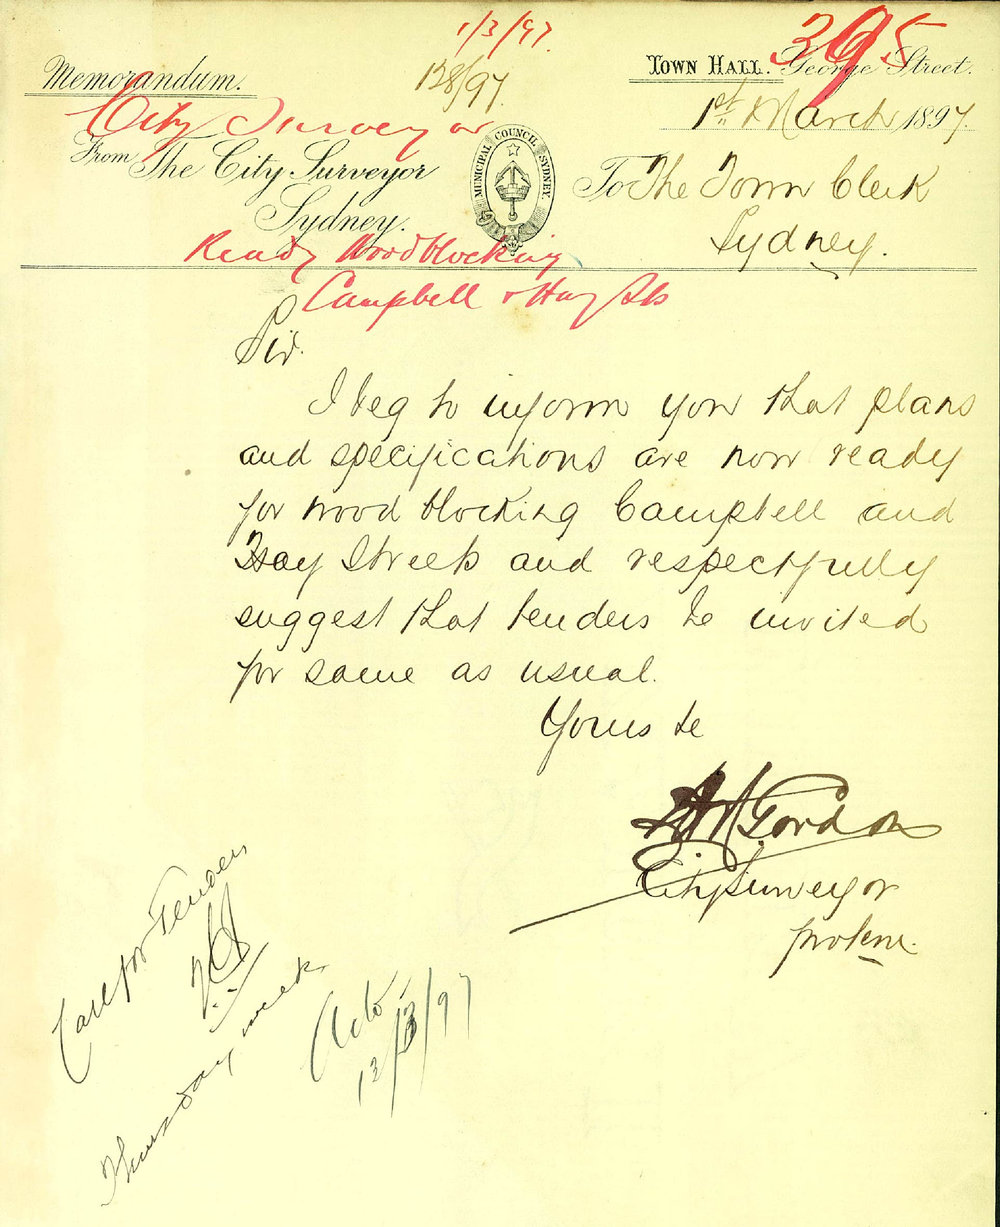 1/3/97
395
128/97
Memorandum.
Town Hall. George Street.
City Surveyor
1st March 1897
From The City Surveyor
Sydney.
MUNICIPAL COUNCIL SYDNEY
To The Town Clerk
Sydney.
Ready Woodblocking
Campbell & Hay Sts
Sir.
I beg to inform you that plans
and specifications are now ready
for wood blocking Campbell and
Hay Streets and respectfully
suggest that tenders be invited
for same as usual.
Yours &c
Gordon
City Surveyor
protem.
Call for Tenders
Thursday week
12/3/97